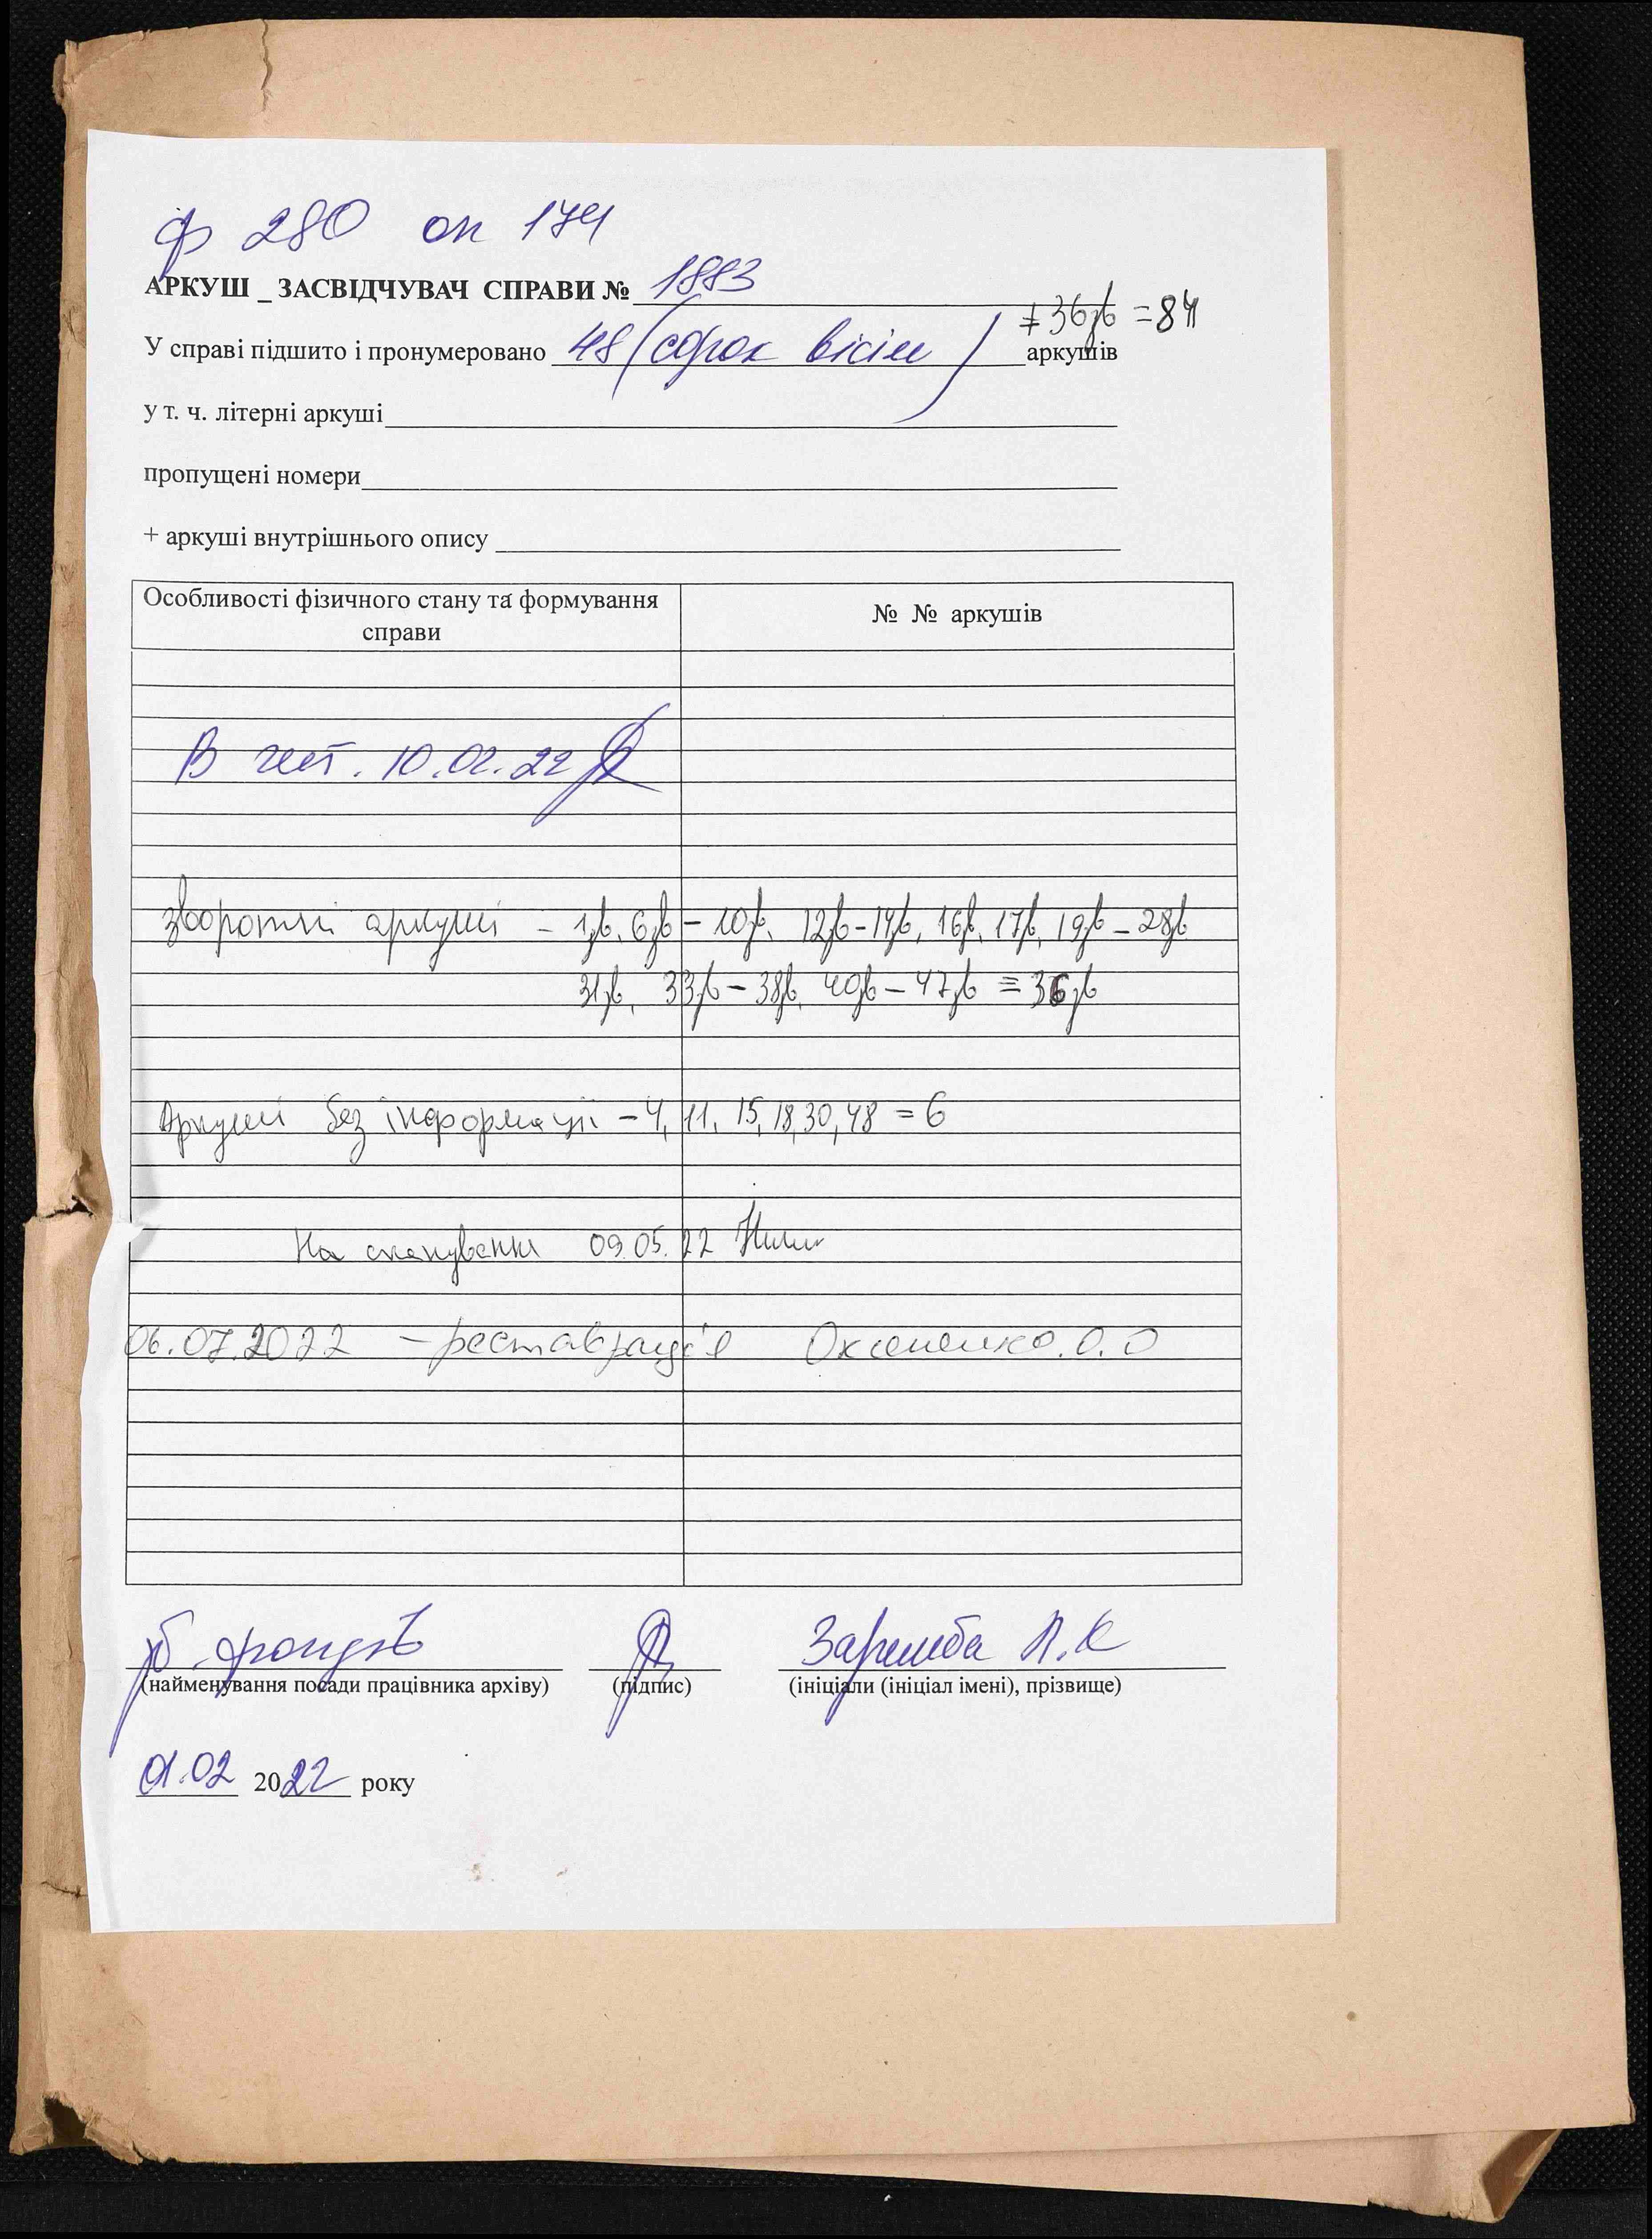 ф 280 оп 174
АРКУШ _ ЗАСВІДЧУВАЧ СПРАВИ № 1883
+ 36зв = 84
У справі підшито і пронумеровано 48 (сорок вісім) аркушів
у т. ч. літерні аркуші
пропущені номери
+ аркуші внутрішнього опису
Особливості фізичного стану та формування справи
№ № аркушів
В 10.02.22
зворотні аркуші – 1зв, 6зв – 10зв, 12зв – 14зв, 16зв, 17зв, 19зв – 28зв
31зв, 33зв – 38зв, 40зв – 47зв = 36зв
Аркуші без інформації – 4, 11, 15, 18, 30, 48 = 6
На сканування 09.05.22
06.07.2022 – реставрація Оксененко. О. О
зб. фондів Заремба Л. К
(найменування посади працівника архіву) (підпис) (ініціали (ініціал імені), прізвище)
01.02 2022 року